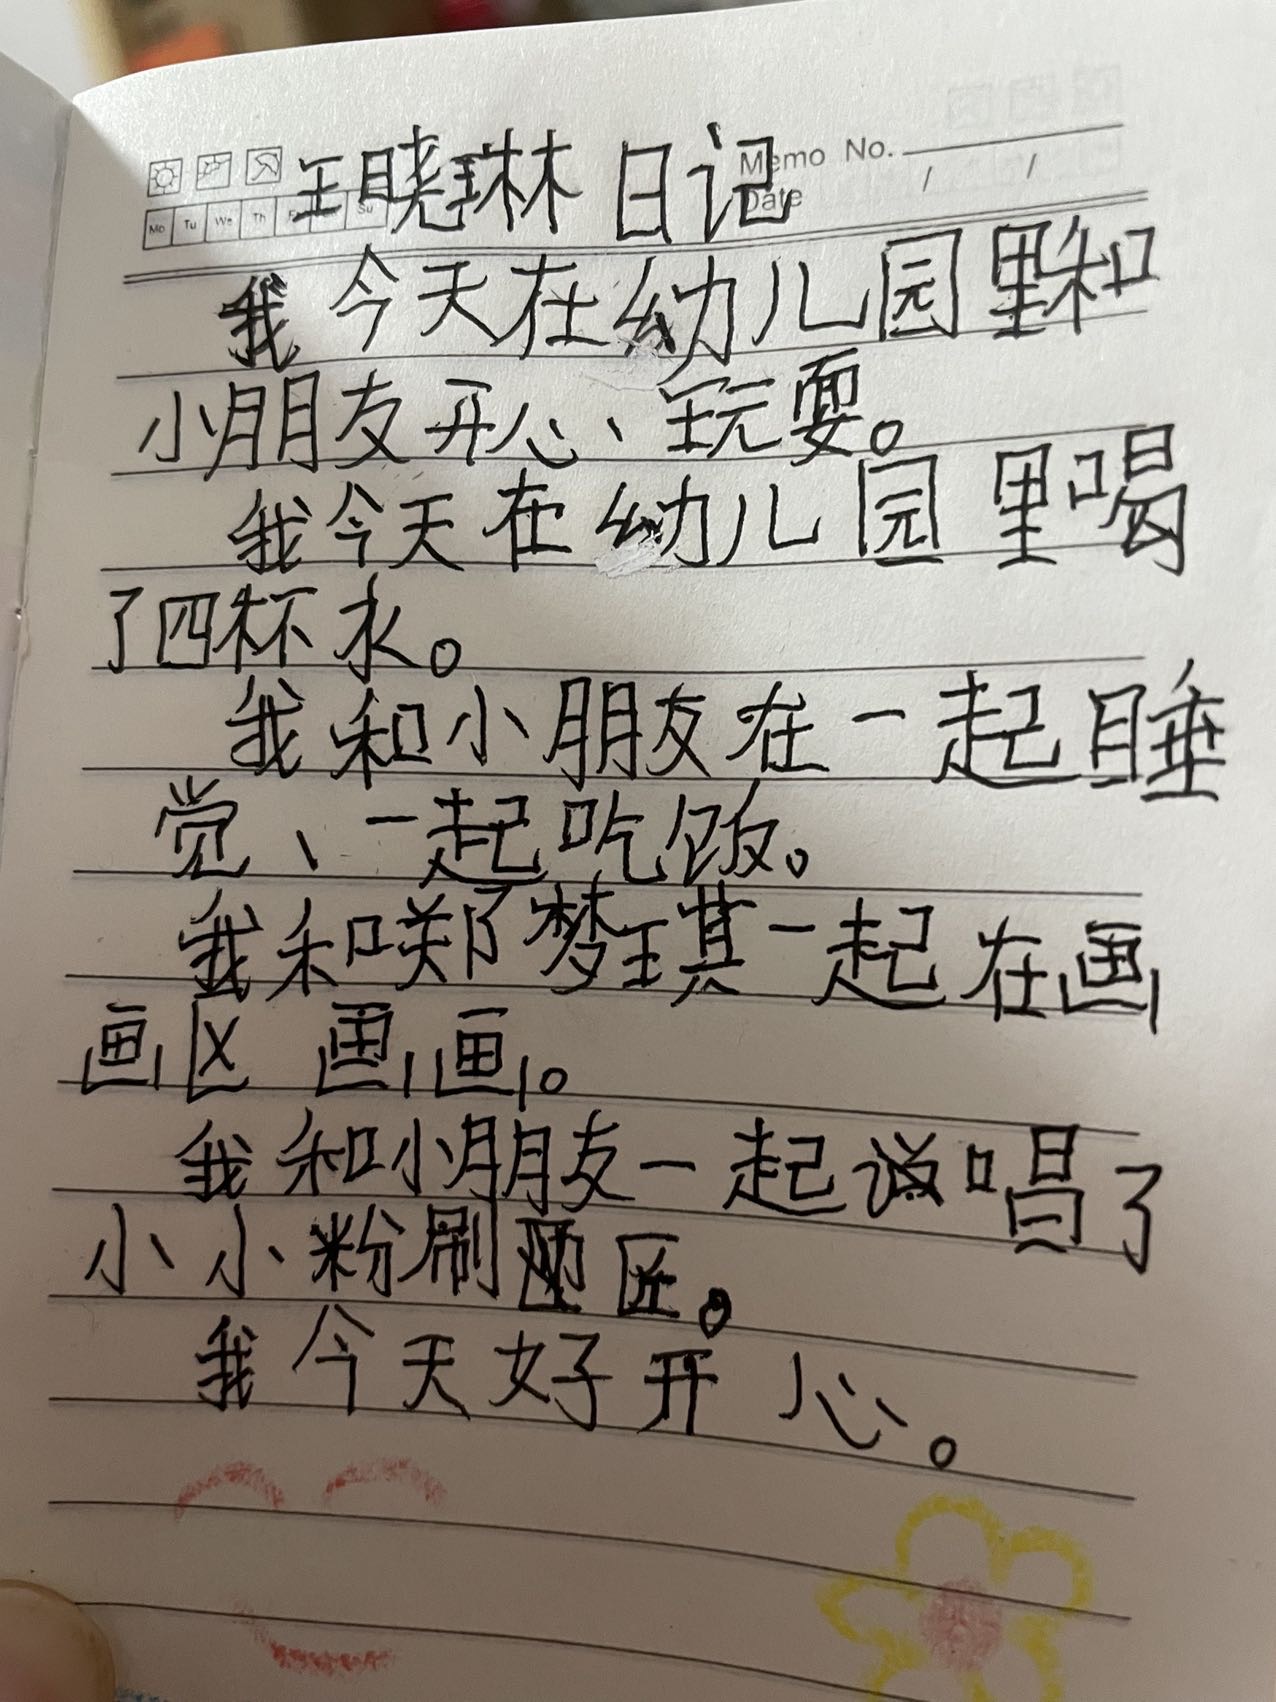 王晓琳 日记
Memo No.
Date / /
Mo Tu We Th F Su
我今天在幼儿园里和
小朋友开心、玩耍。
我今天在幼儿园里喝
了四杯水。
我和小朋友在一起睡
觉、一起吃饭。
我和郑梦琪一起在画
画区画画。
我和小朋友一起说唱了
小小粉刷匠。
我今天好开心。